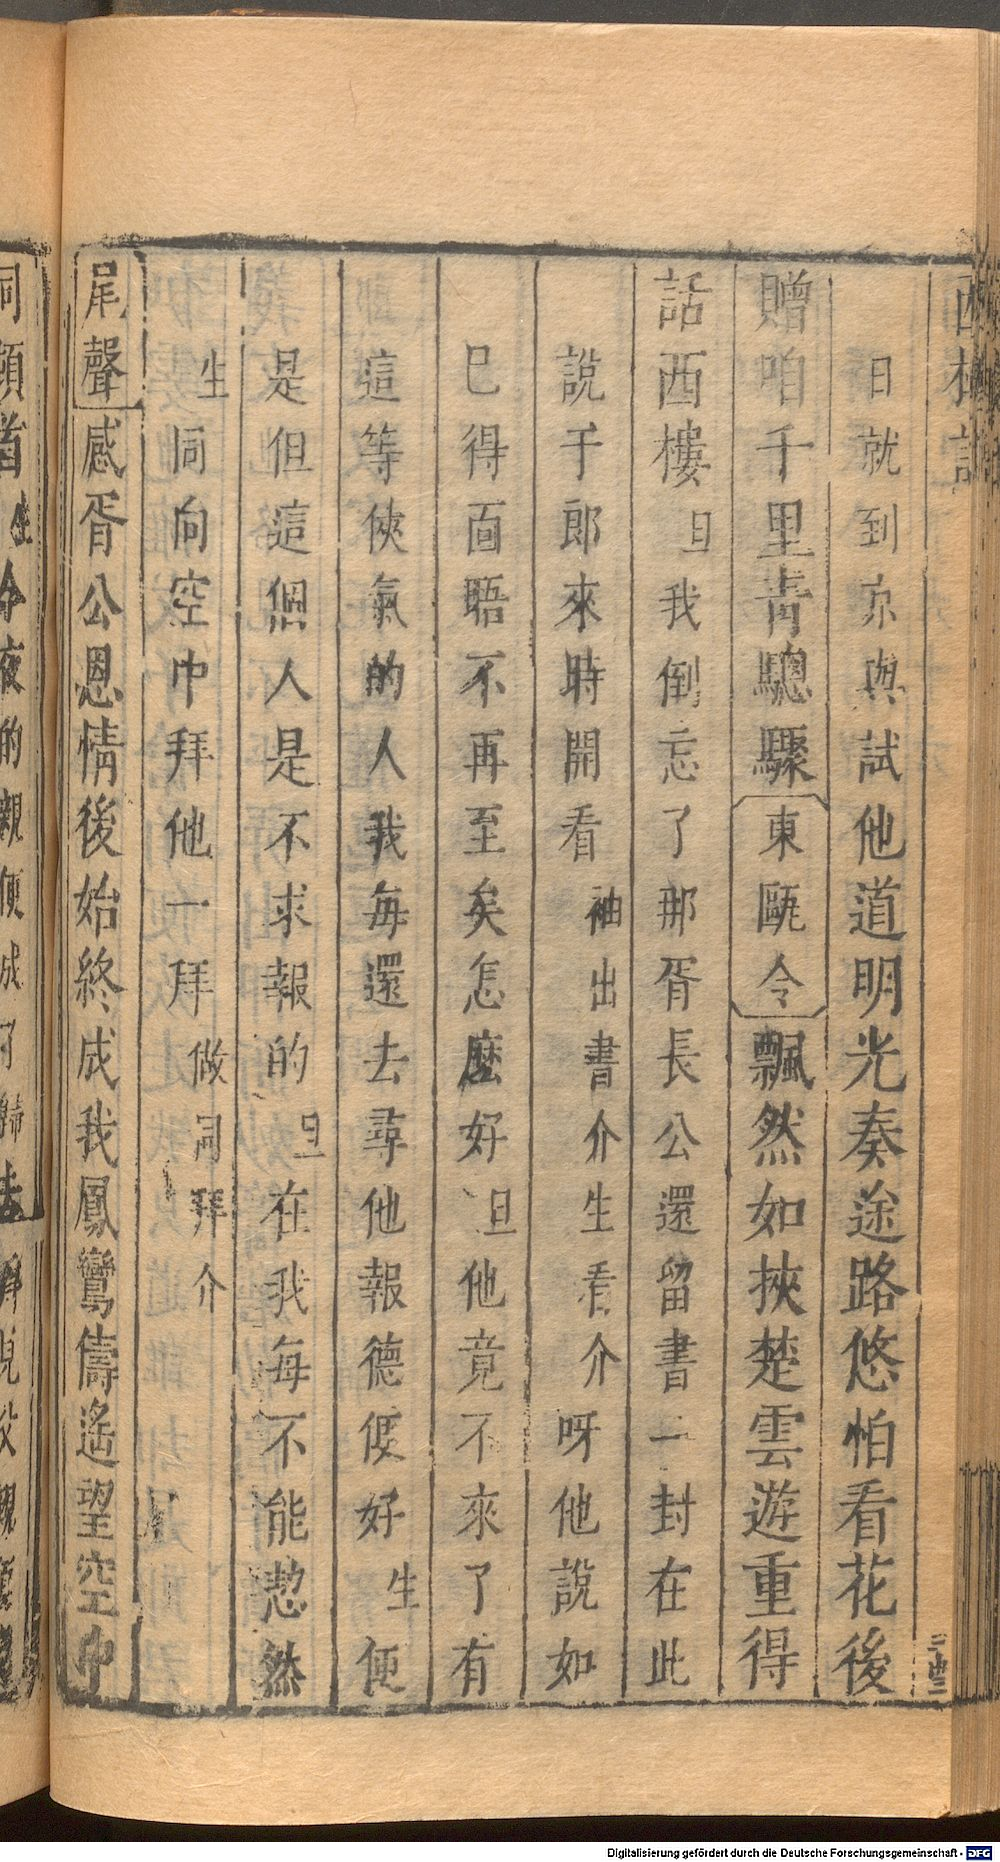 西樓記
日就到京與試他道明光奏途路悠怕看花後
贈咱千里青驄驟東甌令飄然如挾楚雲遊重得
話西樓旦我倒忘了那胥長公還留書一封在此
說于郎來時開看袖出書介生看介呀他說如
已得面晤不再至矣怎麼好旦他竟不來了有
這等俠氣的人我每還去尋他報德便好生便
是但這個人是不求報的旦在我每不能恝然
生同向空中拜他一拜做同拜介
尾聲感胥公恩情後始終成我鳳鸞儔遙望空中
今夜的親便成了歸去
Digitalisierung gefördert durch die Deutsche Forschungsgemeinschaft - DFG